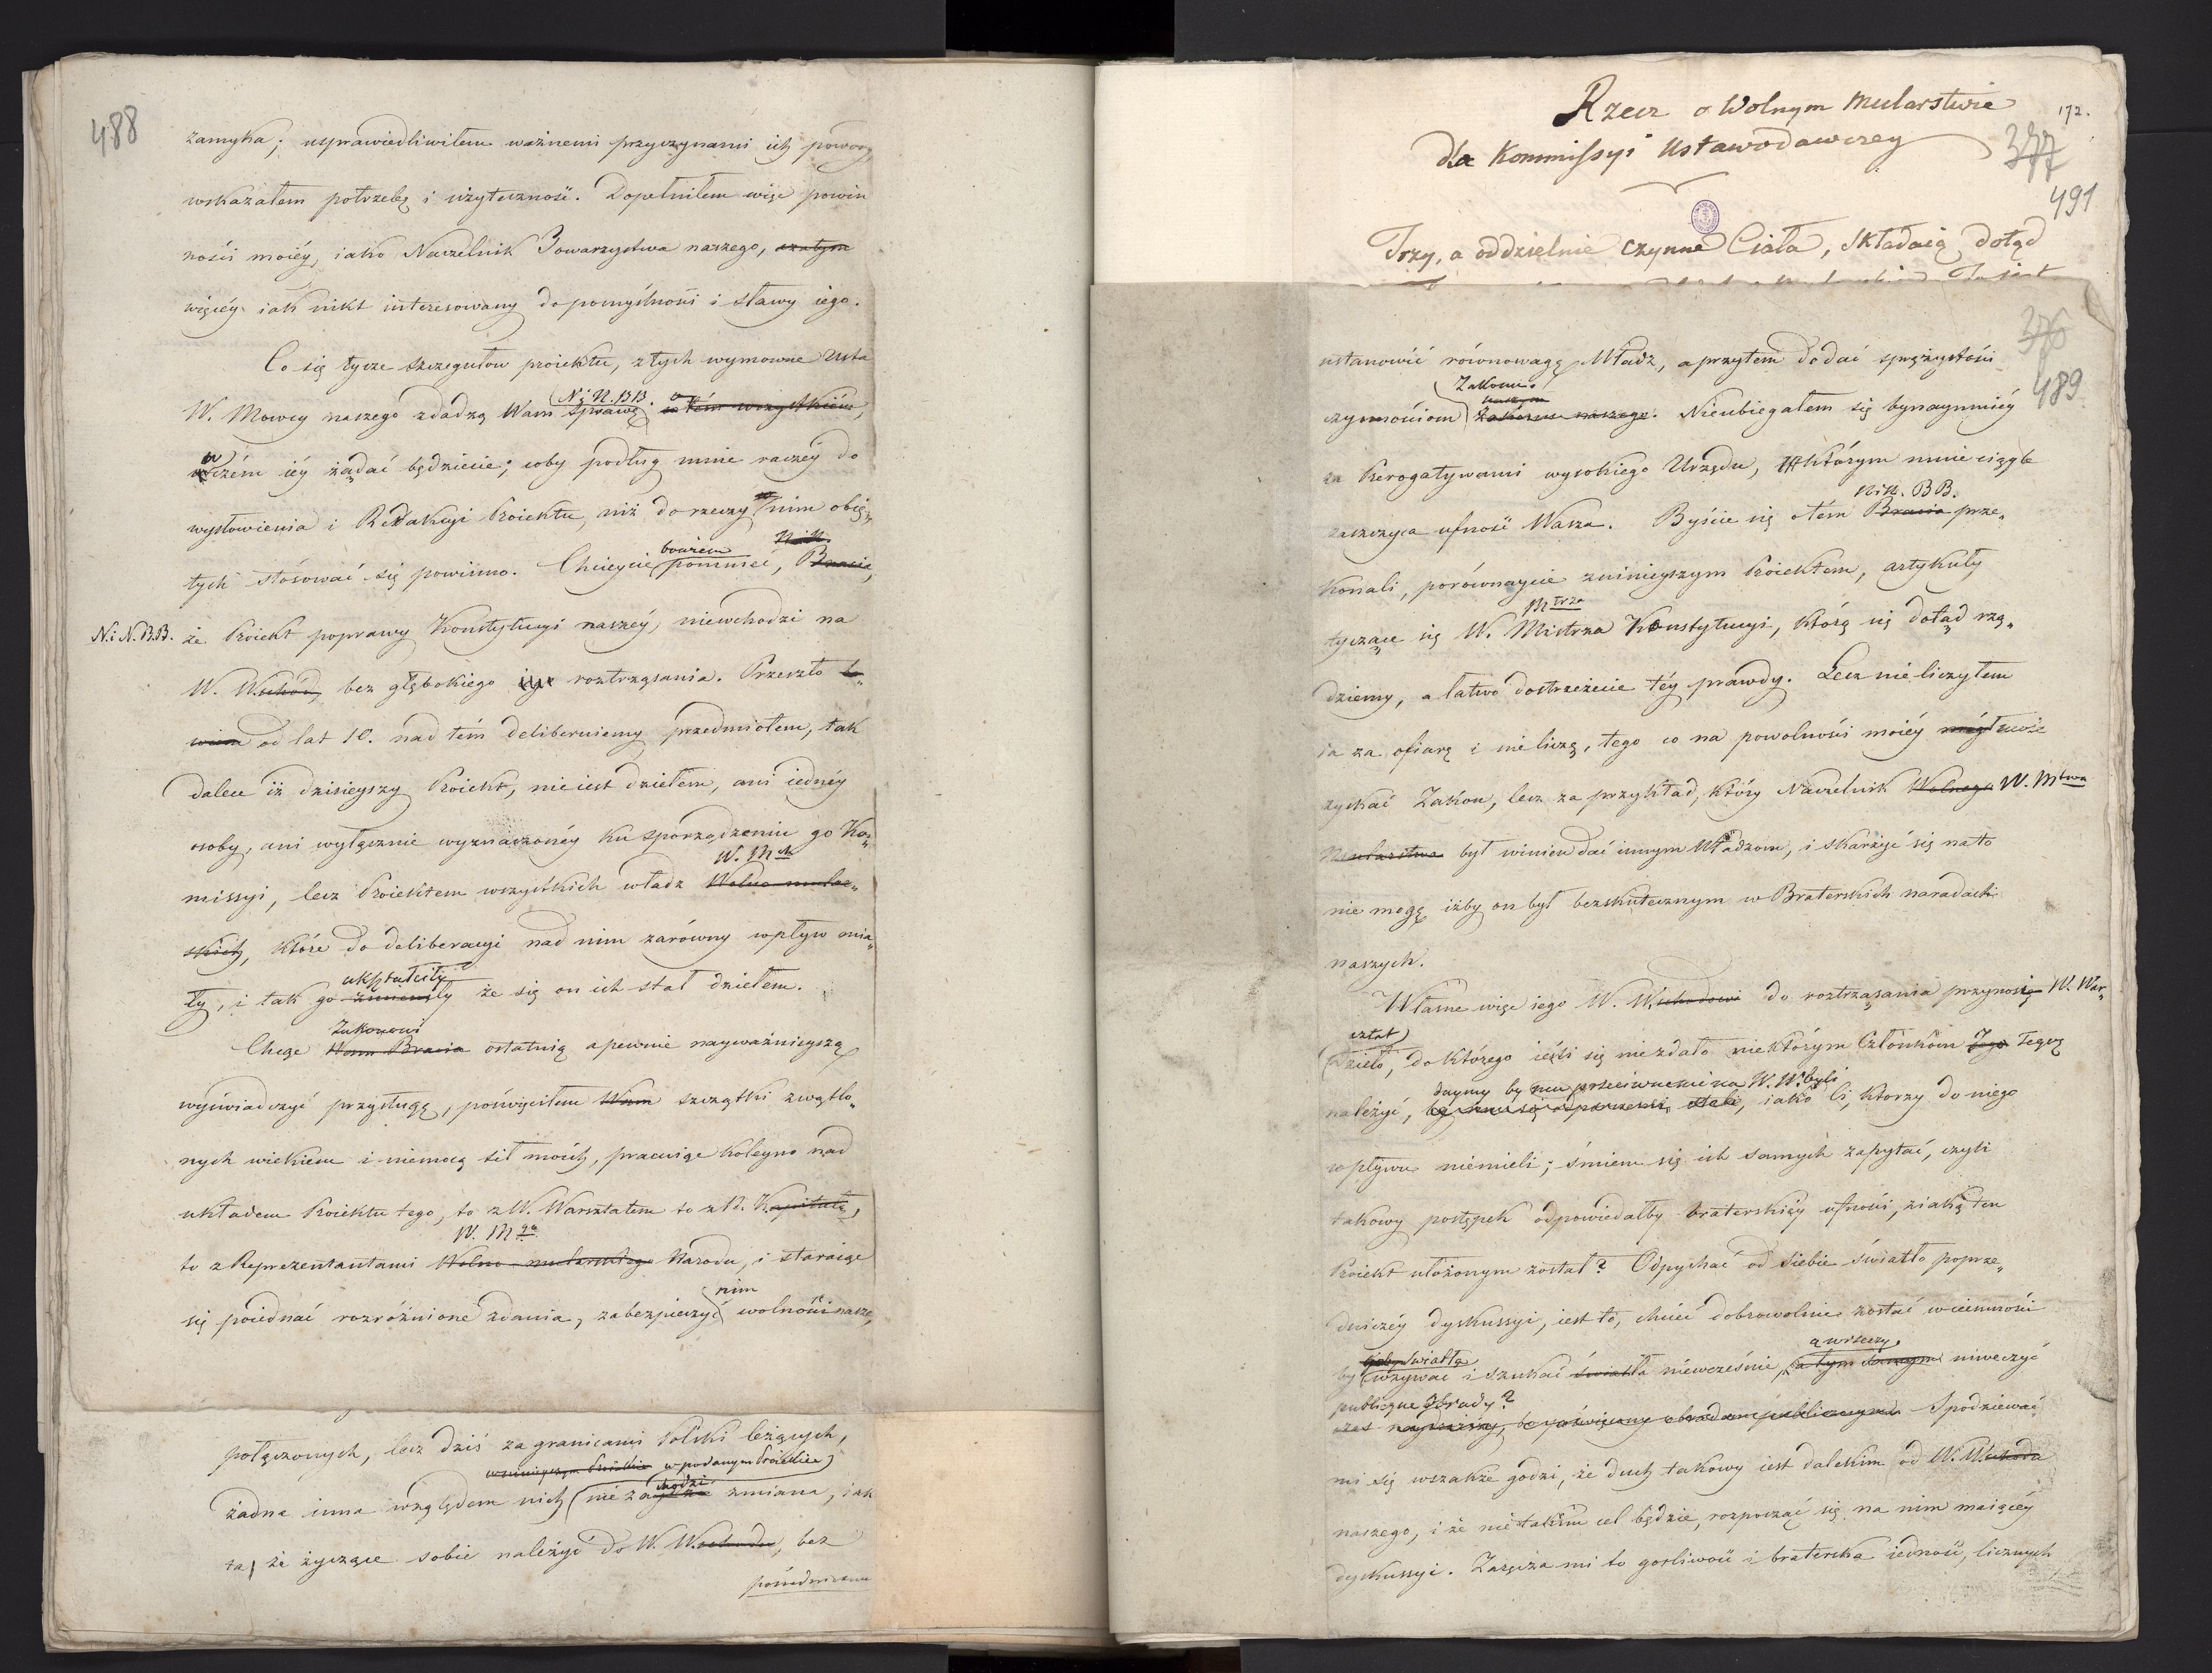 488
zamyka; usprawiedliwiłem ważnemi przyczynami ich powody
wskazałem potrzebę i użyteczność. Dopełniłem więc powin
ności moiéy, iako Naczelnik Towarzystwa naszego, a zatym
więcéy iak nikt interesowany do pomyślności i sławy iego.
Co się tycze szczegułow proiektu, z tych wymowne Usta
N: N. B B.
W. Mowcy naszego zdadzą Wam sprawę w tém wszystkiém,
w czém iéy żądać będziecie; coby podług mnie raczéy do
wysłowienia i Redakcyi Proiektu, niż do rzeczy w nim obię„
bowiem N:N.
tych stósować się powinno. Chcieycie pomnieć, Bracia,
N: N. B.B. że Proiekt poprawy Konstytucyi naszéy, niewchodzi na
W. Wschód, bez głębokiego roztrząsania. Przeszło bo„
wiem od lat 10. nad tém deliberuiemy przedmiotem, tak
dalece iż dzisieyszy Proiekt, nie iest dziełem, ani iednéy
osoby, ani wyłącznie wyznaczonéy ku sporządzeniu go Ko„
W. M
missyi, lecz Proiektem wszystkich władz Wolno-mular„
skich, które do deliberacyi nad nim zarówny wpływ mia„
ukształciły
ły, i tak go zmieniły że się on ich stał dziełem.
Zakonowi
Chcąc Wam Bracia ostatnią a pewnie nayważnieyszą
wyświadczyć przysługę, poświęciłem Wam szczątki zwątlo„
nych wiekiem i niemocą sił moich, pracuiąc koleyno nad
układem Proiektu tego, to z W. Warsztatem to z N. Kapitułą,
W. M go
to z Reprezentantami Wolno-mularskiego Narodu, i staraiąc
nim
się poiednać rozróżnione zdania, zabezpieczyć wolności nasze,
połączonych, lecz dziś za granicami Polski leżących,
w ninieyszym Proiekcie w podanym Proiekcie
chodzi
żadna inna względem nich nie zmiana, iak
ta, że życzące sobie należyć do W. Wschodu, bez
pośrednictwa
Rzecz o Wolnym Mularstwie
172.
dla Kommissyi Ustawodawczey
377
491
Trzy, a oddzielnie czynne Ciała, składaią dotąd
376
489
ustanowić równowagę Władz, a przytem dodać sprężystości
Zakonu.
naszym
czynnościom Zakonu naszego. Nieubiegałem się bynaymniéy
za Prerogatywami wysokiego Urzędu, którym mnie ciągle
N:N. BB.
zaszczyca ufność Wasza. Byście się otém Bracia prze„
konali, porównaycie zninieyszym Proiektem, artykuły
M trza
tyczące się W. Mistrza Konstytucyi, którą się dotąd rzą„
dziemy, a łatwo dostrzeżecie téy prawdy. Lecz nieliczyłem
ia za ofiarę i nieliczę, tego co na powolności moiéy może
zyskać Zakon, lecz za przykład, który Naczelnik Wolnego W. M twa
Mularstwa był winien dać innym Władzom, i skarżyć się na to
nie mogę, iżby on był bezskutecznym w Braterskich naradach
naszych.
Własne więc iego W. Wschodowi do roztrząsania przynoszę W. War„
sztat
Dzieło, do którego ieśli się niezdało niektórym Członkom Jego Tegoż
daymy by mu przeciwnemi na W. W. byli
należyć, iako Ci, ktorzy do niego
wpływu niemieli; śmiem się ich samych zapytać, czyli
takowy postępek odpowiedałby braterskiéy ufności, z iaką ten
Proiekt ułożonym został? Odpychać od siebie światło poprze„
dniczéy dyskussyi, iest to, chcieć dobrowolnie zostać w ciemności
światła a wrzeczy
by wzywać i szukać światła niewcześnie, a tym samym niweczyć
publiczne Obrady?
Spodziewać
mi się wszakże godzi, że duch takowy iest dalekim od W. Wschodu
naszego, i że nie takim cel będzie, rozpocząć się na nim maiącéy
dyskussyi. Zaręcza mi to gorliwość i braterska iedność, licznych